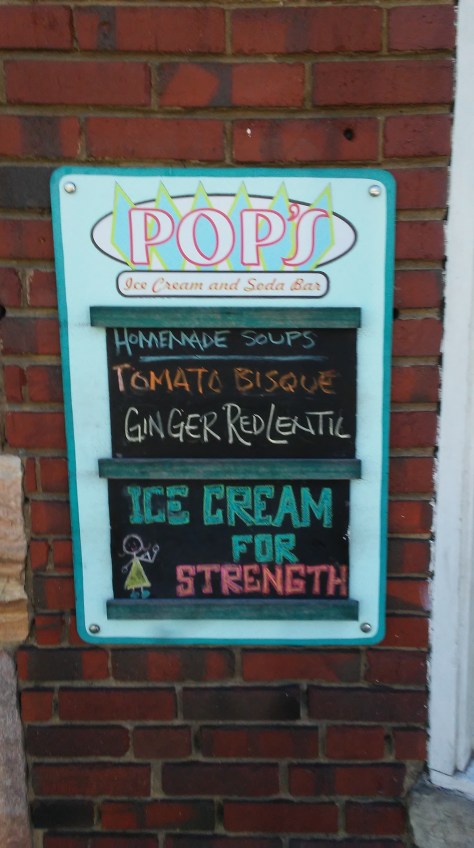 POP'S
Ice Cream and Soda Bar
HOMEMADE SOUPS
TOMATO BISQUE
GINGER RED LENTIL
ICE CREAM
FOR
STRENGTH